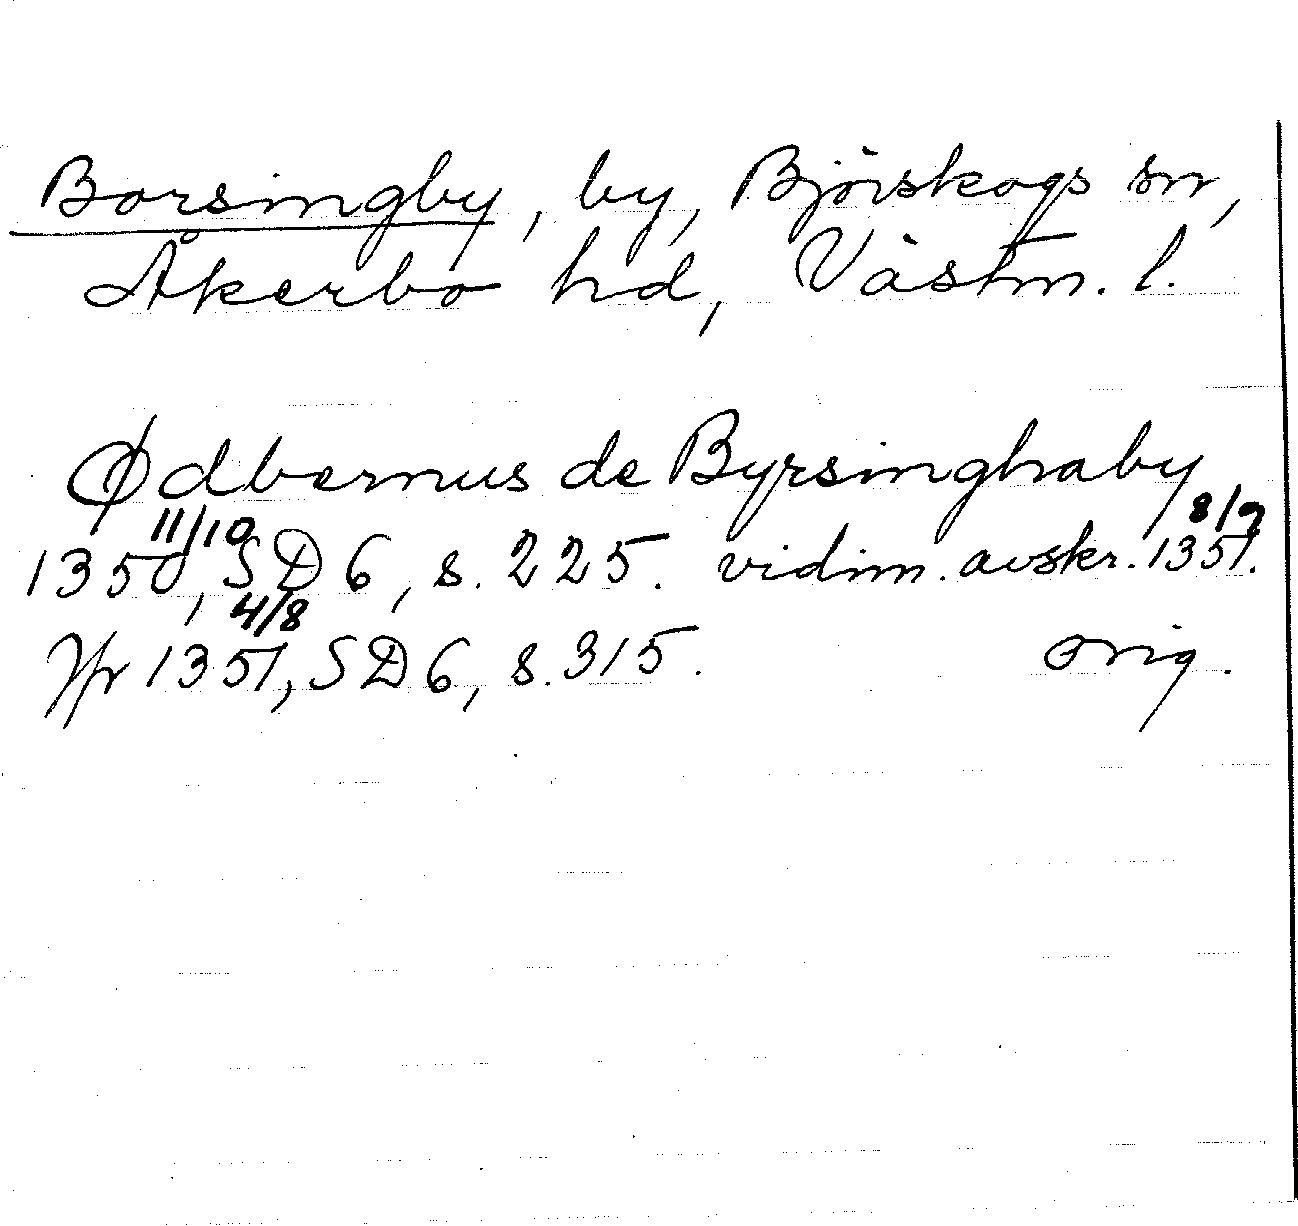 Borsingby, by, Björskogs sn,
Åkerbo hd, Västm. l.
Ødbernus de Byrsinghaby
11/10 8/9
1350, SD 6, s. 225. vidim. avskr. 1351.
4/8
Jfr 1351, SD 6, s. 315. orig.